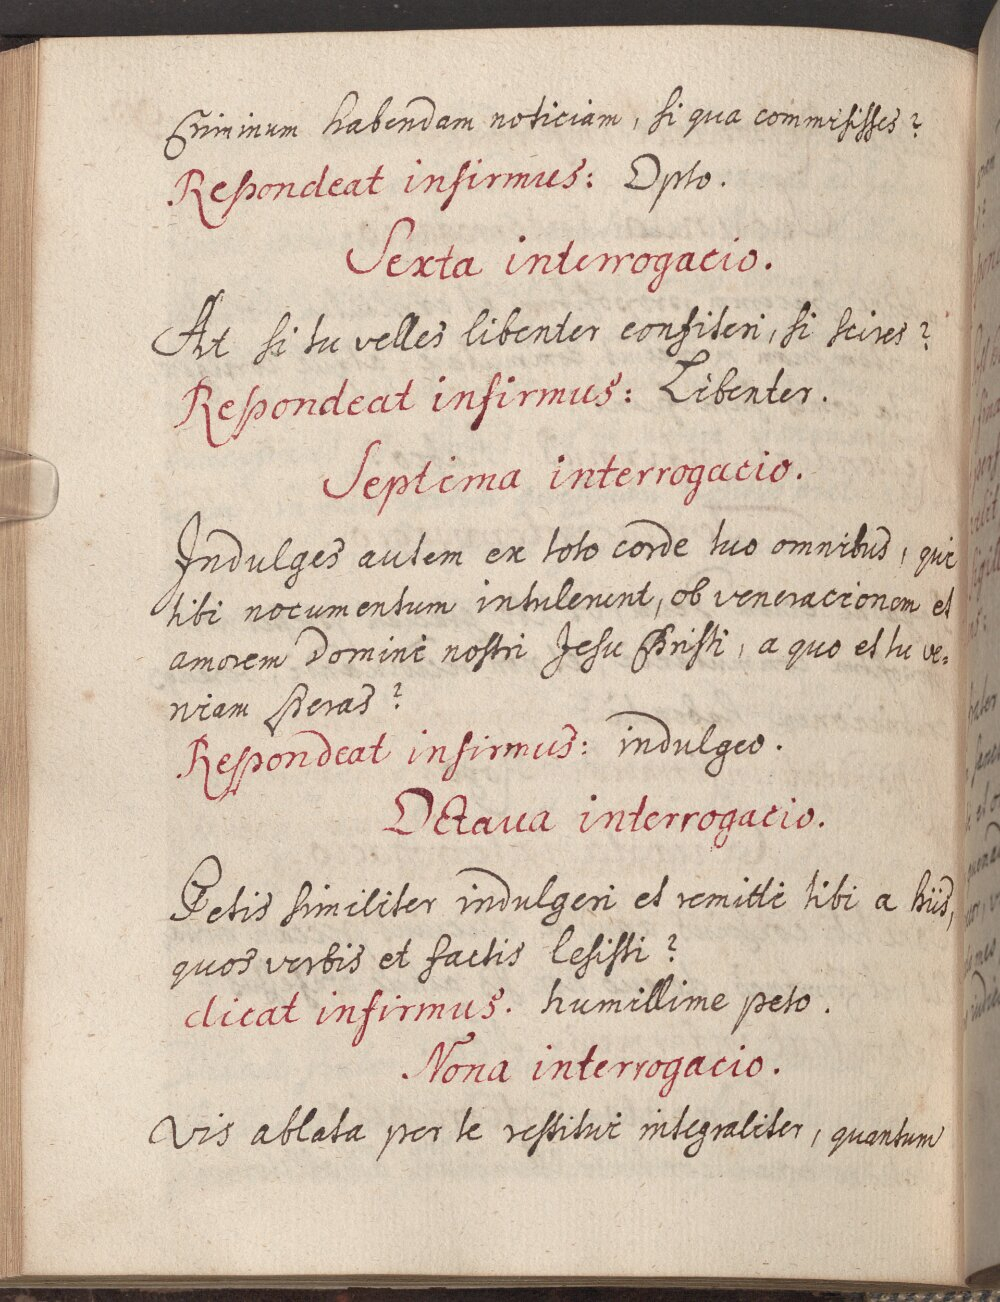 Criminum habendam noticiam, si qua commisisses?
Respondeat infirmus: Opto.
Sexta interrogacio.
At si tu velles libenter confiteri, si scires?
Respondeat infirmus: Libenter.
Septima interrogacio.
Indulges autem ex toto corde tuo omnibus, qui
tibi nocumentum intulerunt, ob veneracionem et
amorem Domini nostri Jesu Christi, a quo et tu ve-
niam speras?
Respondeat infirmus: indulgeo.
Octava interrogacio.
Petis similiter indulgeri et remitti tibi a hiis,
quos verbis et factis lesisti?
dicat infirmus. humillime peto.
Nona interrogacio.
Vis ablata per te restitui integraliter, quantum